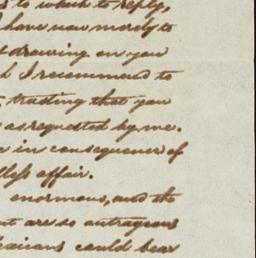 s to which to reply,
I have now merely to
t drawing on you
h I recommend to
, trusting that you
as requested by me.
in consequence of
less affair.
enormous, and the
are so outrageous
could bear